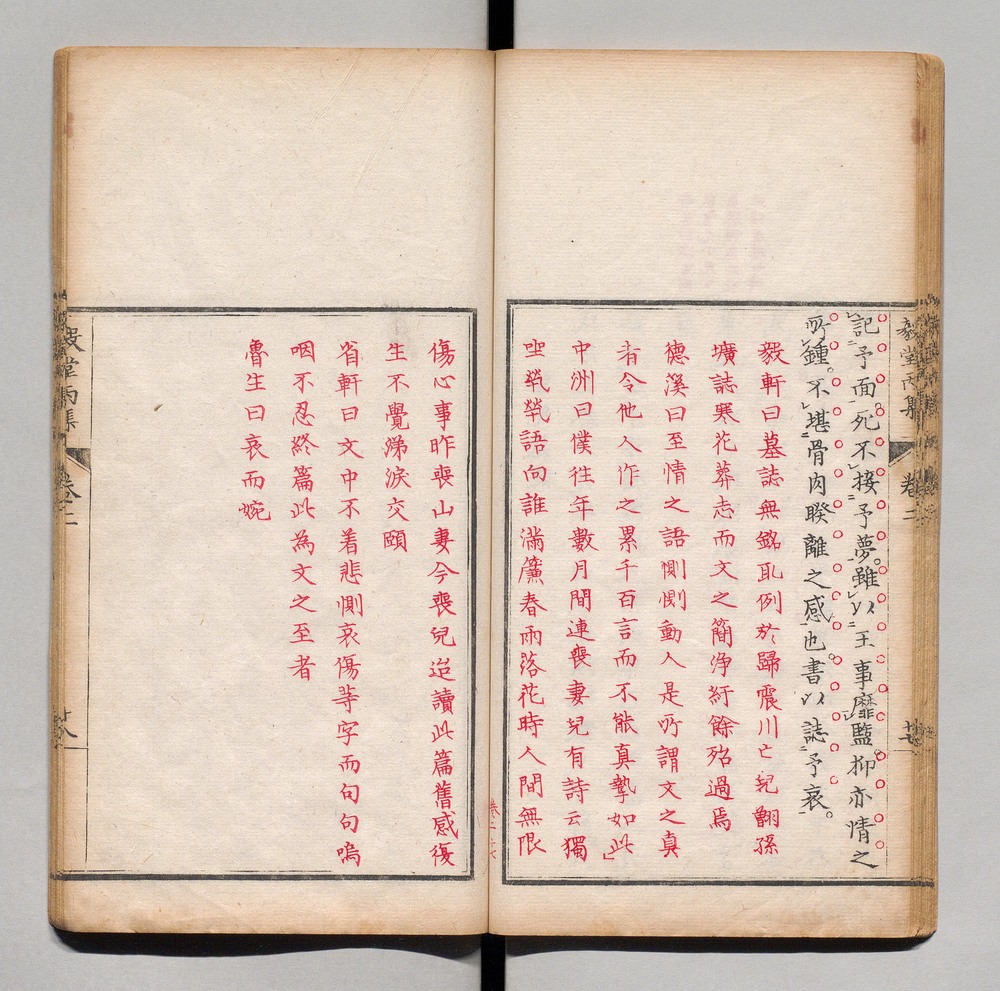 毅堂丙集 卷二
記予面死不接予夢雖以王事靡盬抑亦情之
所鍾不堪骨肉睽離之感也書以誌予哀
毅軒曰墓誌無銘取例於歸震川亡兒䎖孫
壙誌寒花葬志而文之簡淨紆餘殆過焉
德溪曰至情之語惻惻動人是所謂文之真
者令他人作之累千百言而不能真摯如此
中洲曰僕往年數月間連喪妻兒有詩云獨
坐煢煢語向誰滿簾春雨落花時人間無限
傷心事昨喪山妻今喪兒迨讀此篇舊感復
生不覺涕淚交頤
省軒曰文中不着悲惻哀傷等字而句句嗚
咽不忍終篇此為文之至者
魯生曰哀而婉
毅堂丙集 卷二